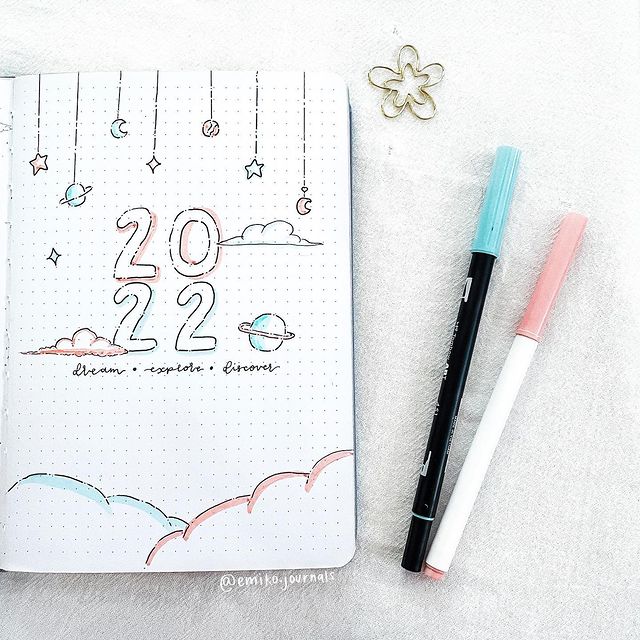 20
22
dream • explore • discover
@emiko.journals